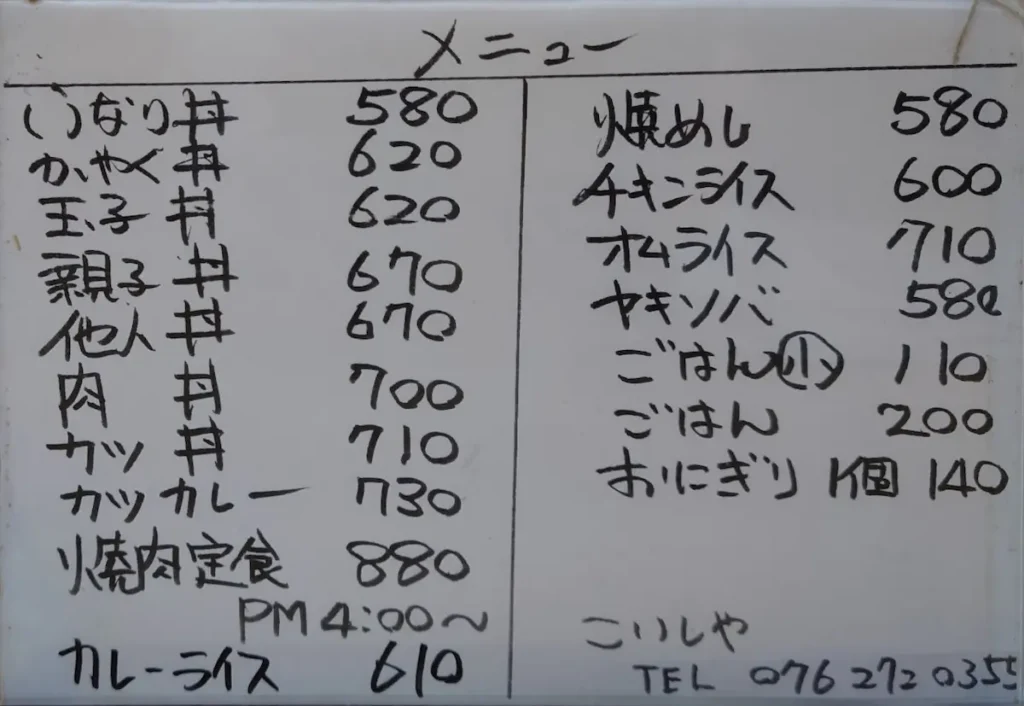 メニュー
いなり丼 580
かやく丼 620
玉子丼 620
親子丼 670
他人丼 670
肉丼 700
カツ丼 710
カツカレー 730
焼肉定食 880
PM4:00～
カレーライス 610
焼めし 580
チキンライス 600
オムライス 710
ヤキソバ 580
ごはん(小) 110
ごはん 200
おにぎり 1個 140
こいしや
TEL 076 272 0355